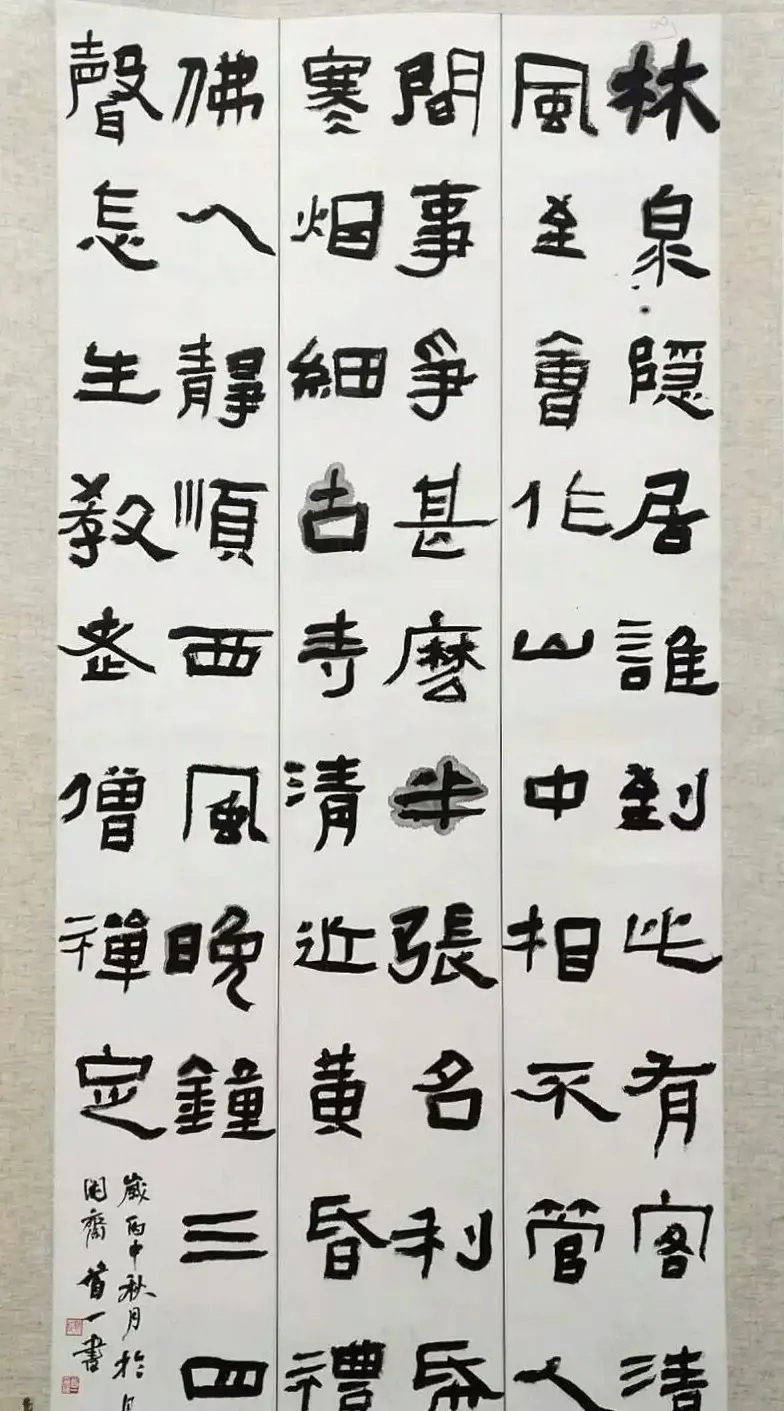 林泉隱居誰到此有客清
風至會作山中相不管人
間事爭甚麼半張名利帋
寒烟細古寺清近黃昏禮
佛人靜順西風晚鐘三四
聲怎生教老僧禪定
歲丙申秋月於
齋一書